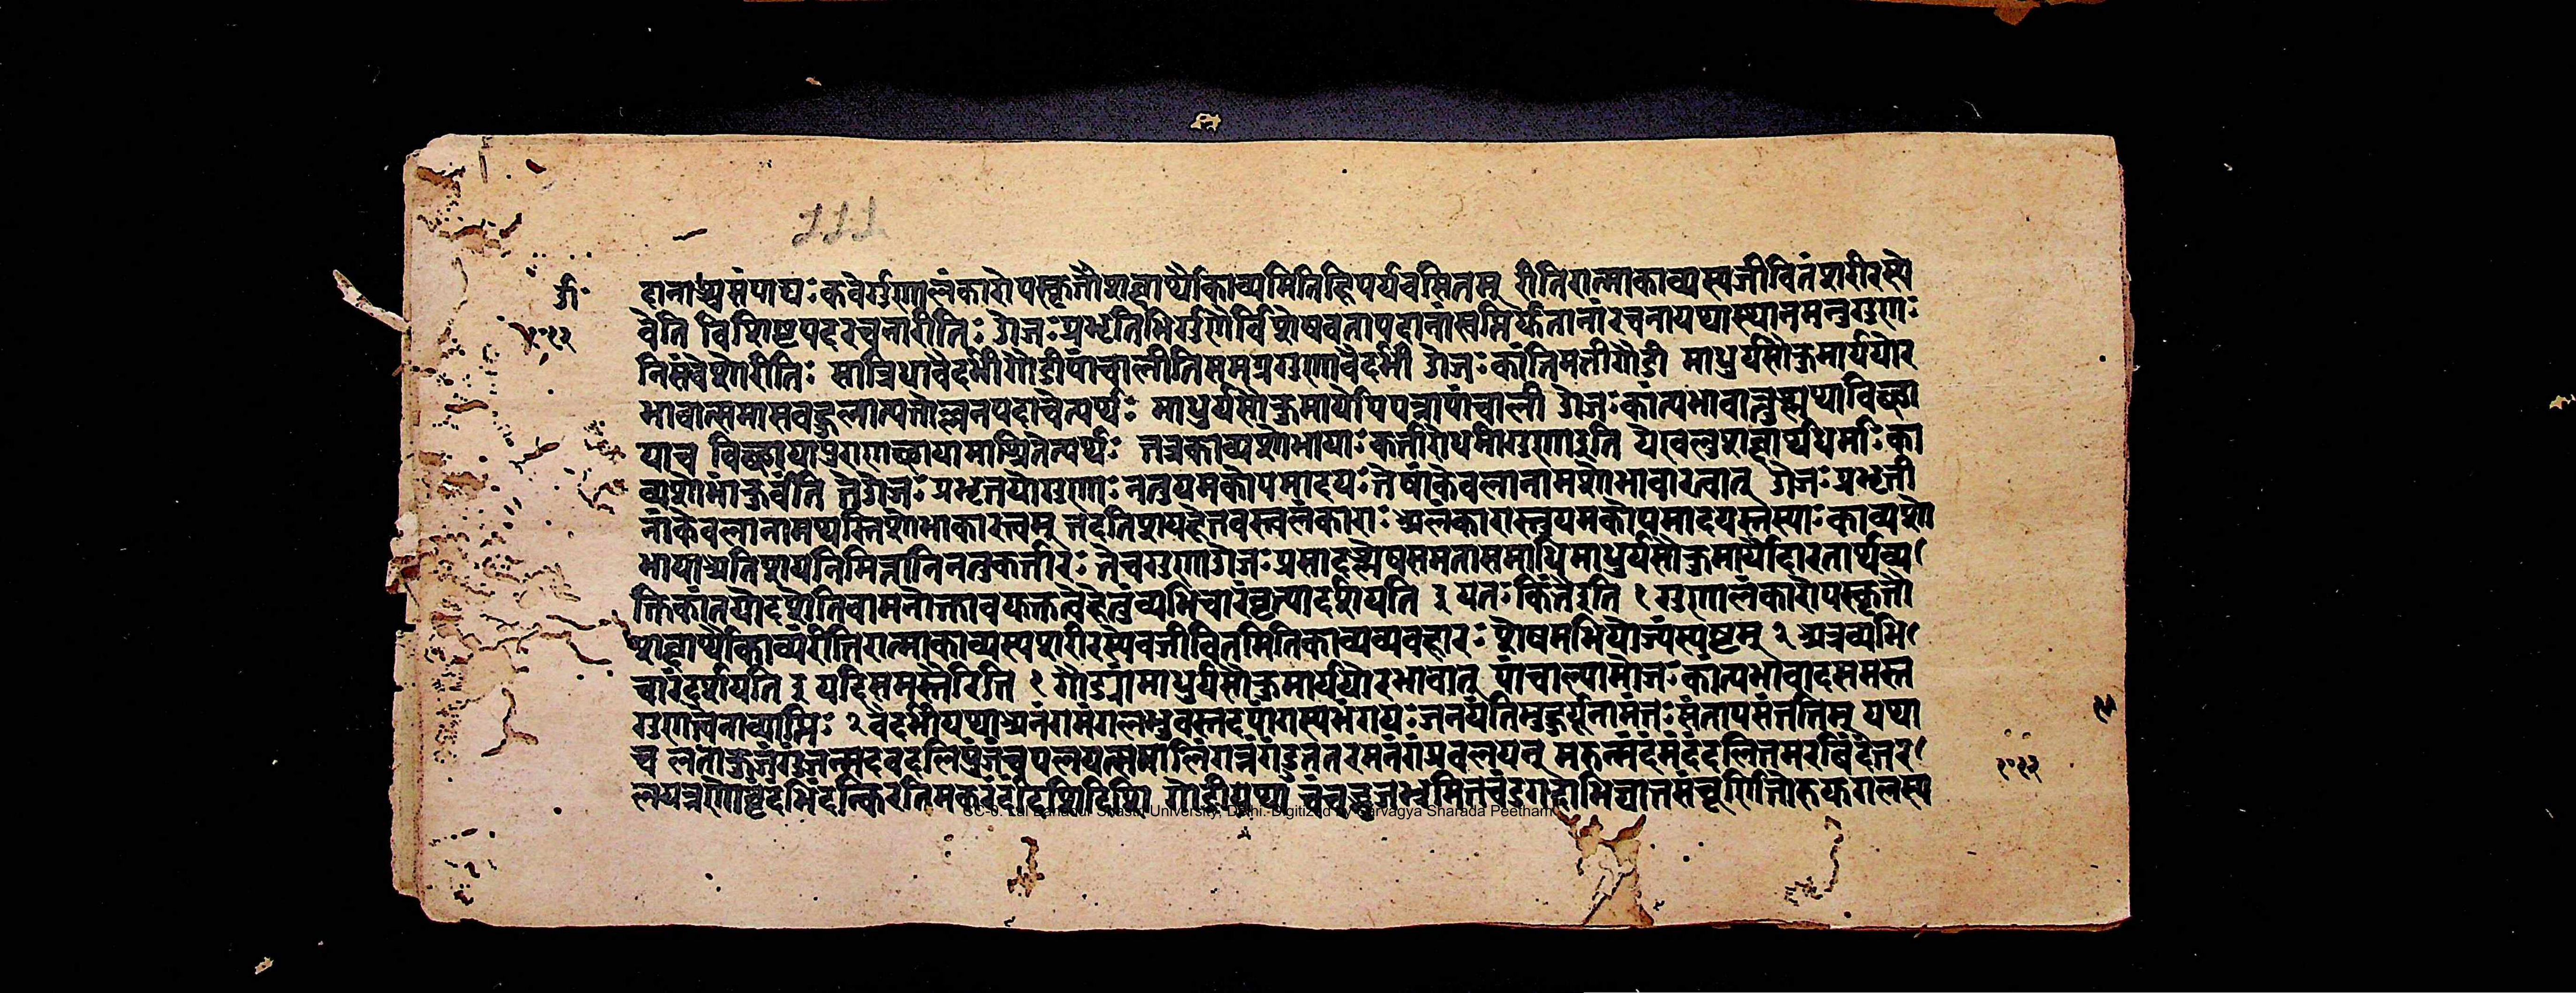 १११
टी॰
१०१२
दानाश्रसंपाद्यः कवेर्गुणालंकारोपस्कृतौशब्दार्थौकाव्यमितिहिपर्यवसितम् रीतिरात्माकाव्यस्यजीवितंशरीरस्ये
वेति विशिष्टपदरचनारीतिः ओजःप्रभृतिभिर्गुणैर्विशेषवतांपदानांसन्निर्फितानांरचनायथास्थानमनुगुणः
निसंवेशोरीतिः सात्रिधावैदर्भीगौडीपांचालीतिसमग्रगुणावैदर्भी ओजःकांतिमतीगौडी माधुर्यसौकुमार्ययोर
भावात्समासवहुलात्यतोल्वनपदाचेत्यर्थः माधुर्यसौकुमार्योपपन्नापांचाली ओजःकांत्यभावानुल्वणाविछा
याच विछायापुराणछायामाश्रितेत्यर्थः तत्रकाव्यशोभायाः कर्तारोधर्मागुणाइति येखलुशब्दार्थधर्माः का
व्यशोभांकुर्वंति तेओजःप्रभृतयोगुणाः नतुयमकोपमादयः तेषांकेवलानामशोभाकरत्वात् ओजःप्रभृती
नांकेवलानामप्यस्तिशोभाकारत्वम् तदतिशयहेतवस्त्वलंकाराः अलंकारास्तुयमकोपमादयस्तस्याः काव्यशो
भायाअतिशयनिमित्तानिनतुकर्तारः तेचगुणाओजःप्रसादश्लेषसमतासमाधिमाधुर्यसौकुमार्योदारतार्थव्य
क्तिकांतयोदशेतिवामनोक्तावफक्तत्वेहेतुंव्यभिचारंवृत्त्यादर्शयति ३ यतः किंतैइति १ गुणालंकारोपस्कृतौ
शब्दार्थौकाव्यंरीतिरात्माकाव्यस्यशरीरस्यवजीवितमितिकाव्यव्यवहारः शेषमभियोज्यंस्पष्टम् २ अत्रव्यभि
चारंदर्शयति ३ यदिसमस्तैरिति १ गौडयांमाधुर्यसौकुमार्ययोरभावात् पांचाल्यामोजःकांत्यभावादसमस्त
गुणत्वेनाव्याप्तिः २ वैदर्भीयथाअनंगमंगलभुवस्तदपांगस्यभंगयः जनयंतिमुहुर्यूनामंतःसंतापसंततिम् यथा
च लताकुंजंगुंजन्मदवदलिपुंजंचपलयत्समालिंगन्नंगंद्रुततरमनंगंप्रबलयन् मरुन्मंदंमंदंदलितमरविंदंतर
लयन्रजोवृंदंविंदन्किरतिमकरंदंदिशिदिशि गौडीयथा चंचद्भुजभ्रमितचंडगदाभिघातसंचूर्णितोरुयुगलस्य
१०१२
CC-0. Lal Bahadur Shastri University, Delhi. Digitized by Sarvagya Sharada Peetham